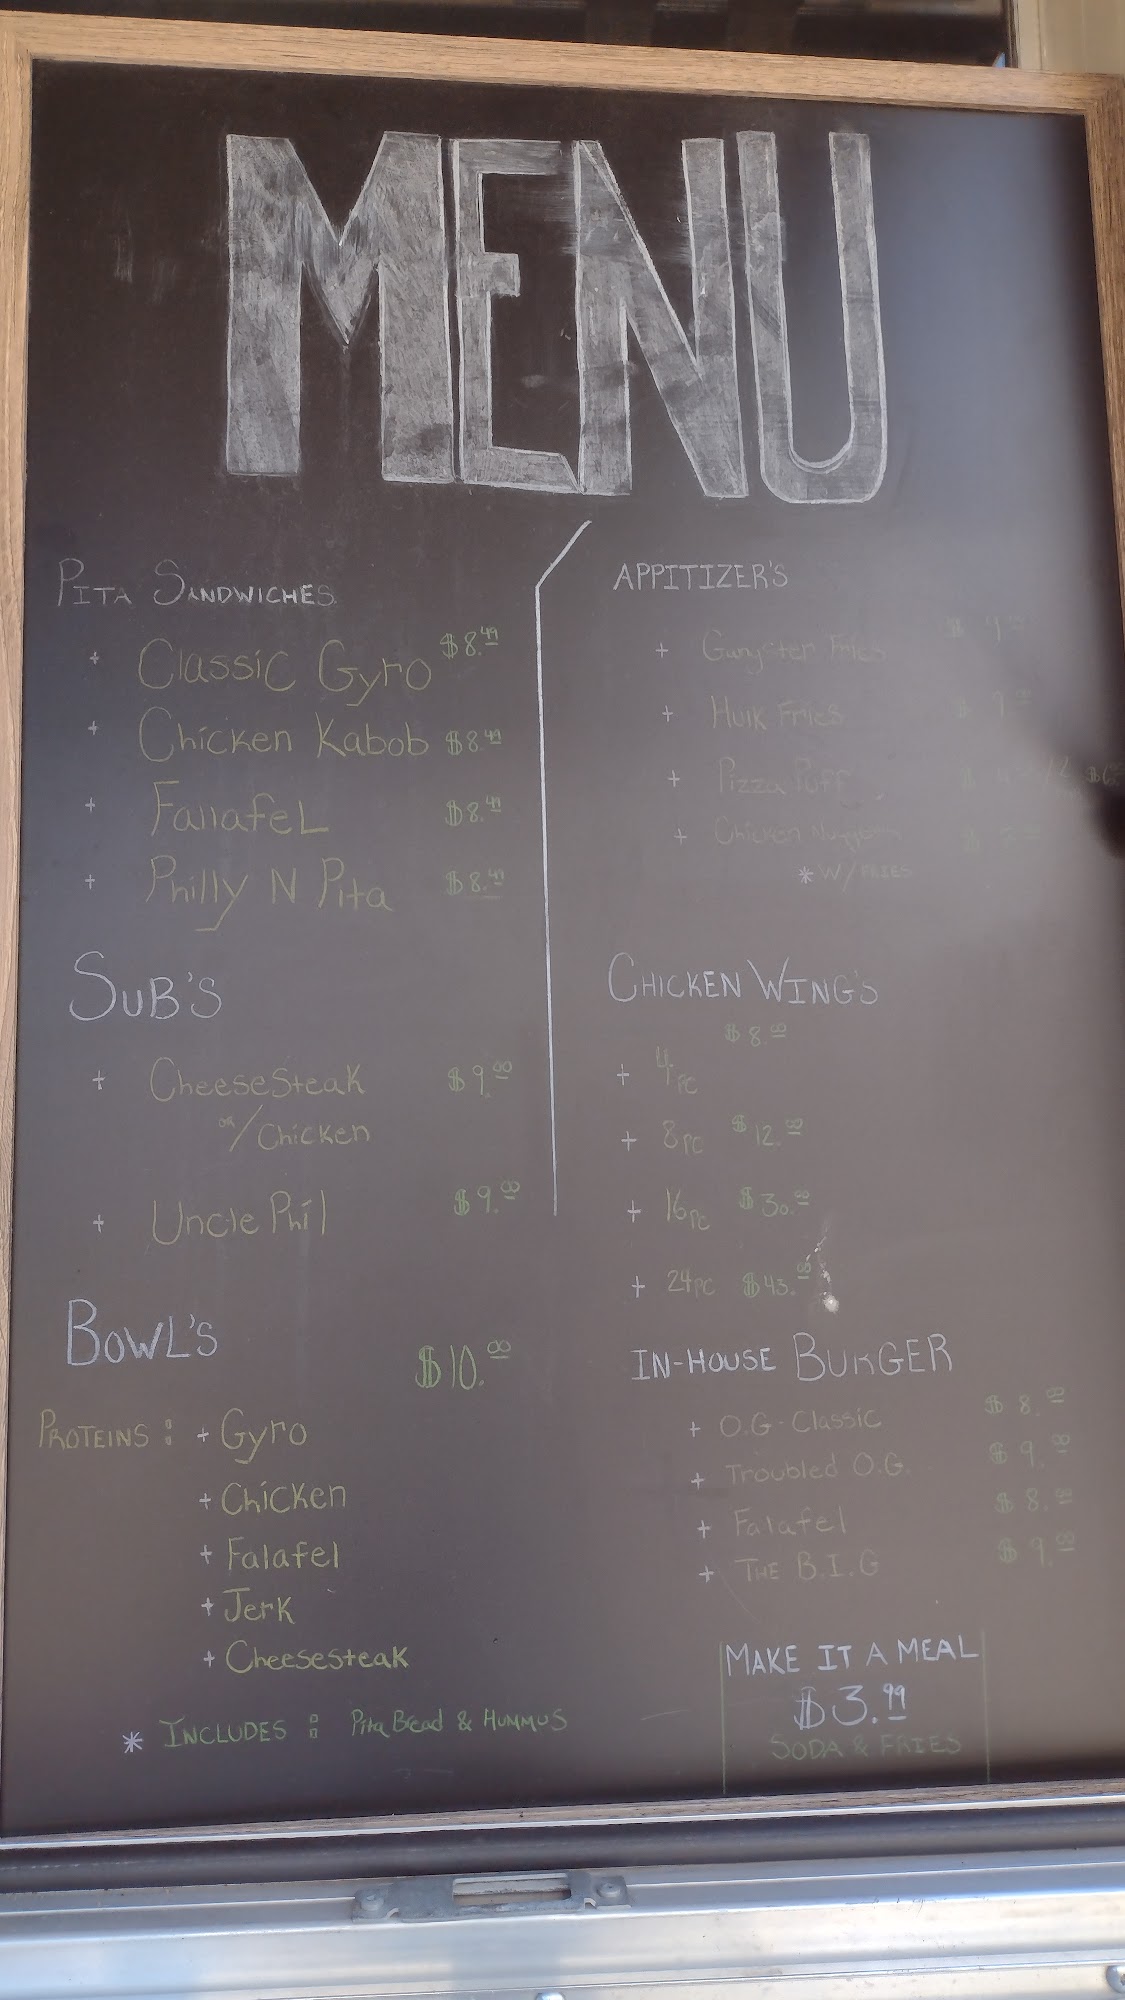 MENU
PITA SANDWICHES
+ Classic Gyro $8.49
+ Chicken Kabob $8.49
+ Fallafel $8.49
+ Philly N Pita $8.49
SUB'S
+ Cheesesteak $9.00
or/Chicken
+ Uncle Phil $9.00
BOWL'S $10.00
PROTEINS: + Gyro
+ Chicken
+ Falafel
+ Jerk
+ Cheesesteak
* INCLUDES: Pita Bread & HUMMUS
APPITIZER'S
+ Gangster Fries
+ Hulk Fries $9.00
+ Pizza Puff
+ Chicken
* W/ FRIES
CHICKEN WING'S
+ 4PC $8.00
+ 8PC $12.00
+ 16PC $30.00
+ 24PC $43.00
IN-HOUSE BURGER
+ O.G-Classic $8.00
+ Troubled O.G. $9.00
+ Falafel $8.00
+ THE B.I.G $9.00
MAKE IT A MEAL
$3.99
SODA & FRIES